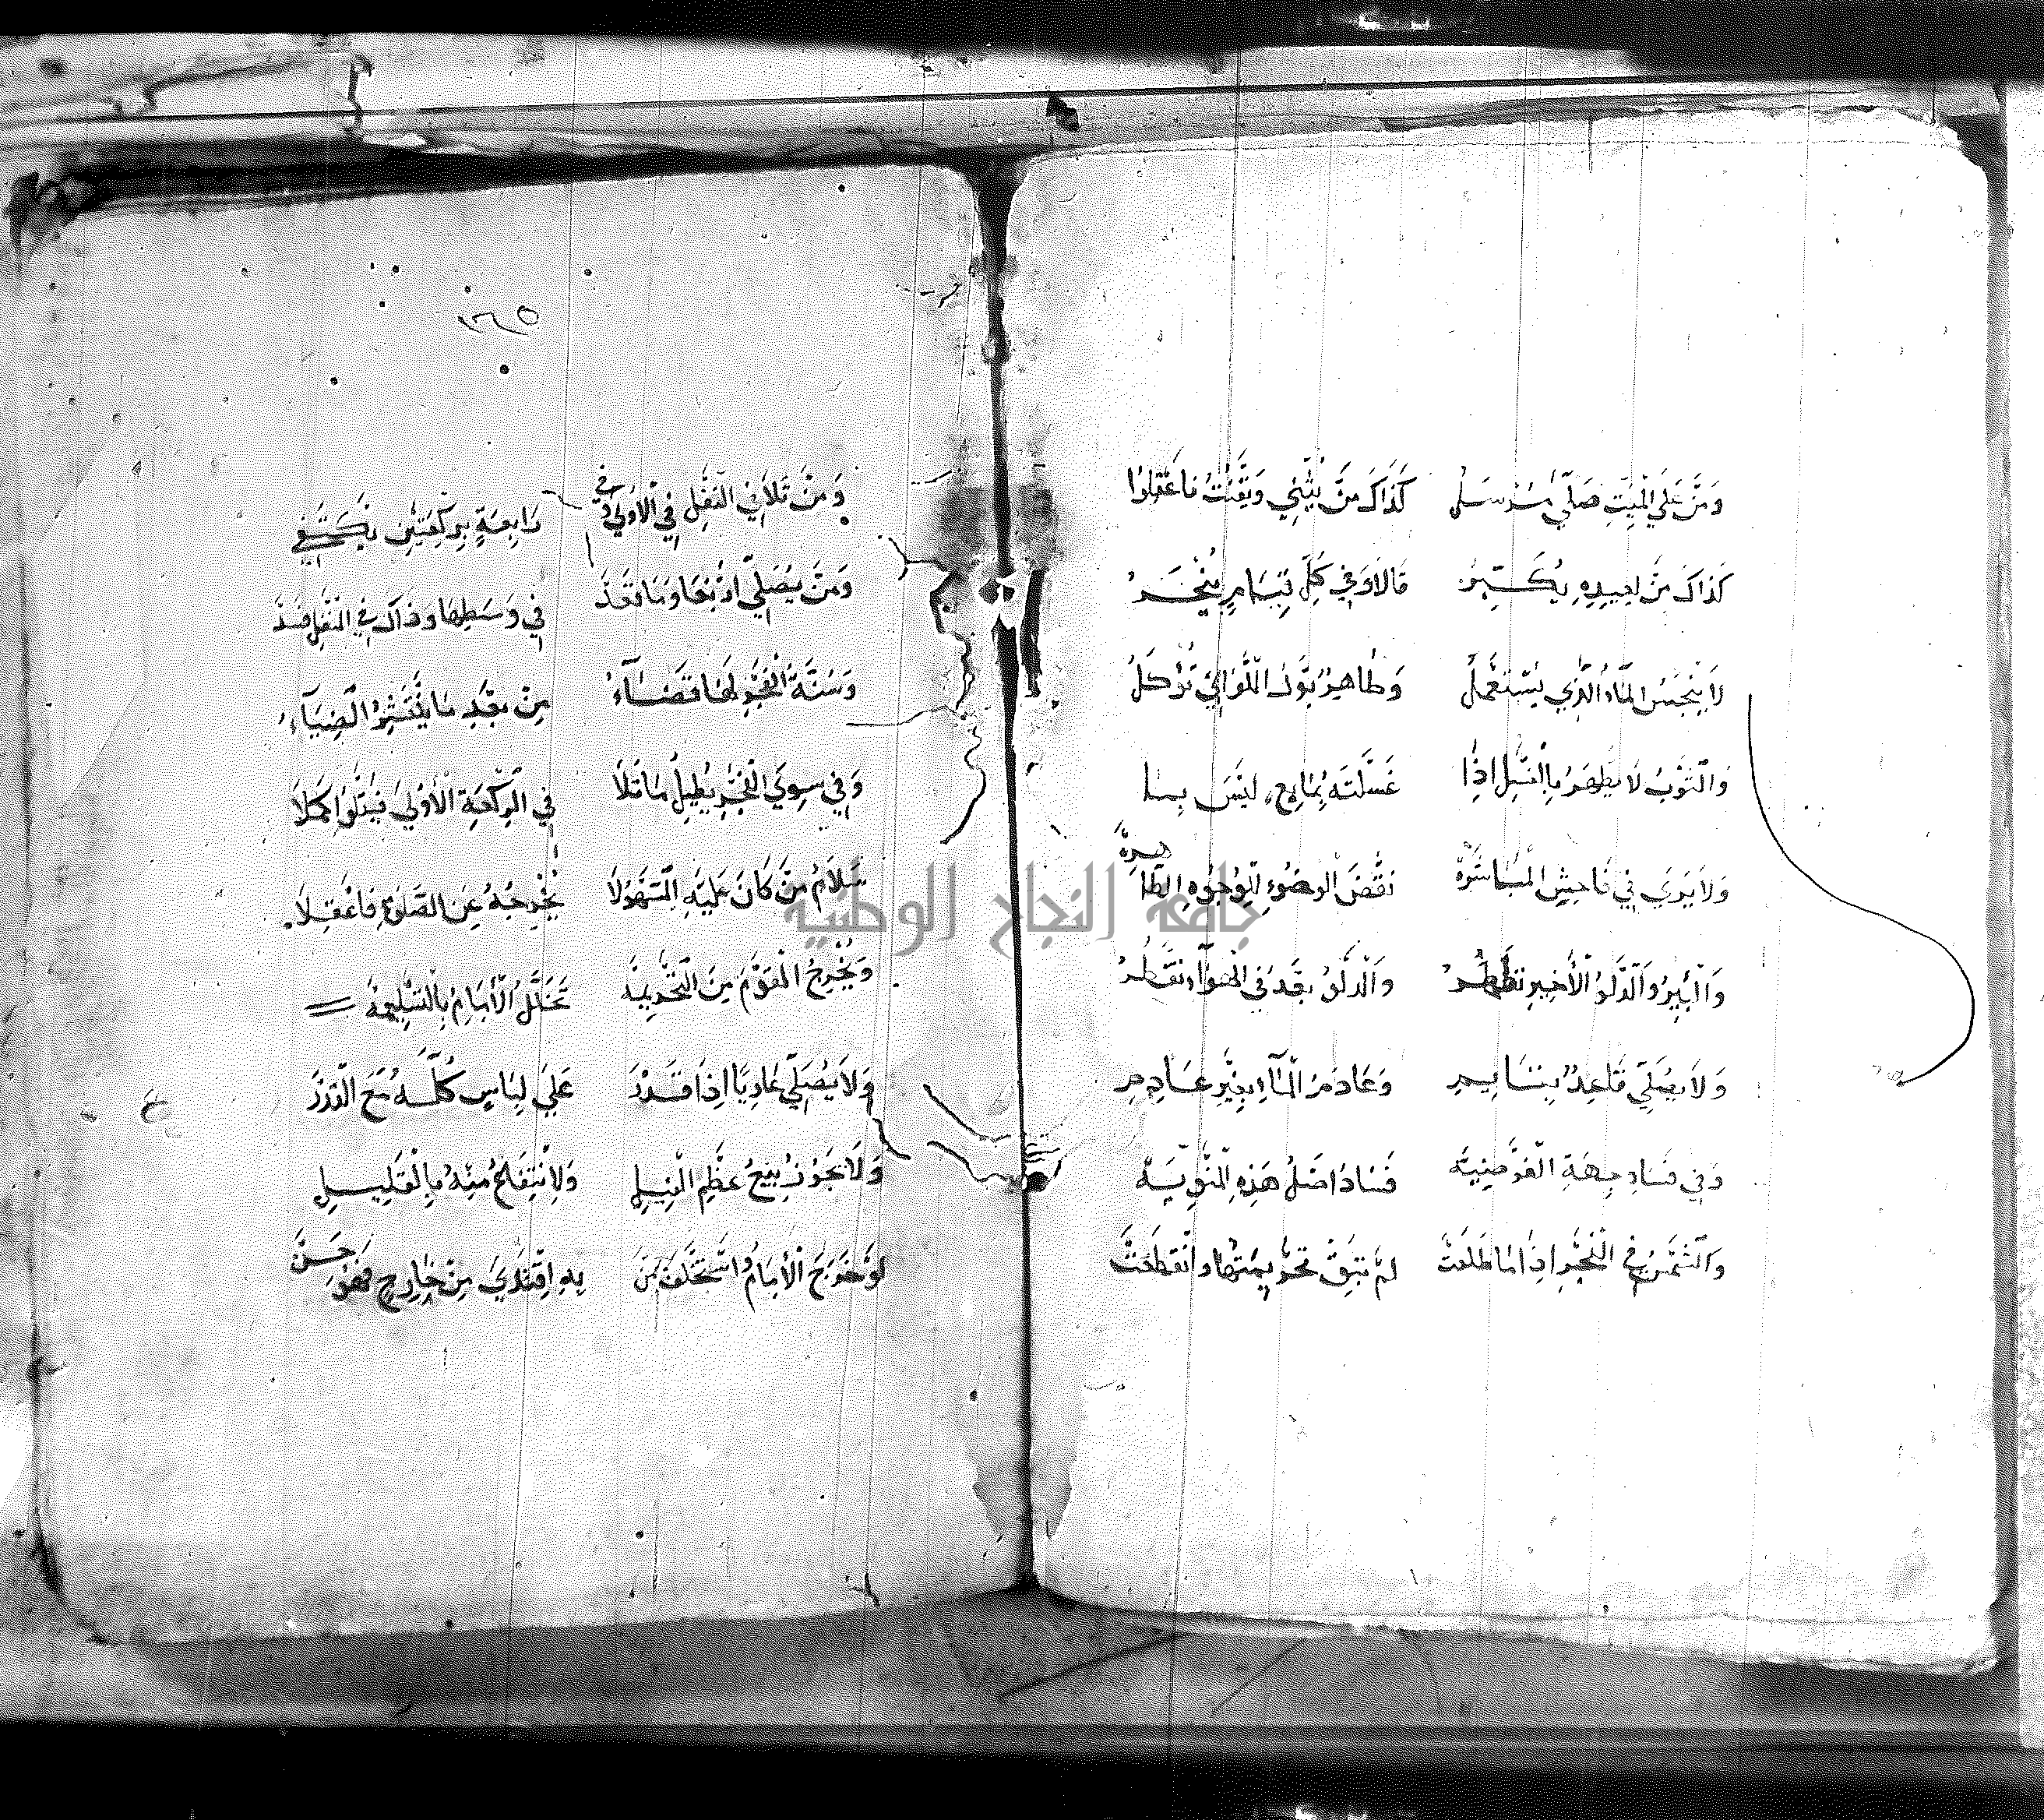 وَمَنْ عَلَى الْمَيِّتِ صَلَّى مُذْ سَلَمْ كَذَاكَ مَنْ يُثْنِي وَيَقْنُتُ فَاعْتَلُوا
كَذَاكَ مَنْ لِعِيدِهِ يُكَبِّرُ قَالَا وَفِي كُلِّ قِيَامٍ يُنْحَرُ
لَا يَنْجَسُ الْمَاءُ الَّذِي يُسْتَعْمَلُ وَطَاهِرٌ بَوْلُ اللَّوَاتِي تُؤْكَلُ
وَالثَّوْبُ لَا يَطْهَرُ بِالْغَسْلِ إِذَا غَسَلْتَهُ بِمَايِعٍ لَيْسَ بِمَا
وَلَا يَرَى فِي فَاحِشِ الْمُبَاشَرَةْ نَقْضَ الْوُضُوءِ لِلْوُجُوهِ الظَّاهِرَةْ
وَالْبِئْرُ وَالدَّلْوُ الْأَخِيرِ تَطْهُرُ وَالدَّلْوُ بَعْدُ فِي الْهَوَاءِ تَقْطُرُ
وَلَا يُصَلِّي قَاعِدٌ بِنَايِمِ وَعَادِمُ الْمَاءِ بِغَيْرِ عَادِمِ
وَفِي فَسَادِ جِهَةِ الْفَرْضِيَّةْ فَسَادُ أَصْلِ هَذِهِ الْقَوِيَّةْ
وَالشَّمْسُ فِي الْفَجْرِ إِذَا مَا طَلَعَتْ لَمْ تَبْقَ تَحْرِيمَتُهَا وَانْقَطَعَتْ
١٦٥
وَمَنْ تَلَا فِي النَّفْلِ فِي الْأُولَى وَفِي رَابِعَةٍ بِرَكْعَتَيْنِ يَكْتَفِي
وَمَنْ يُصَلِّي أَرْبَعًا وَمَا قَعَدْ فِي وَسَطِهَا وَذَاكَ فِي النَّفْلِ فَسَدْ
وَسُنَّةُ الْفَجْرِ لَهَا قَضَاءُ مِنْ بَعْدِ مَا يَنْتَشِرُ الضِّيَاءُ
وَفِي سِوَى الْفَجْرِ يُطِيلُ مَا تَلَا فِي الرَّكْعَةِ الْأُولَى فَيَتْلُوا كَمَلَا
سَلَامُ مَنْ كَانَ عَلَيْهِ السَّهْوُ لَا يُخْرِجُهُ عَنِ الصَّلَوةِ فَاعْقِلَا
وَيُخْرِجُ الْقَوْمَ مِنَ التَّحْرِيمَةْ تَحَلُّلُ الْإِمَامِ بِالتَّسْلِيمَةْ
وَلَا يُصَلِّي عَارِيًا إِذَا قَدَرْ عَلَى لِبَاسٍ كُلُّهُ مَعَ الْقَذَرْ
وَلَا يَجُوزُ بَيْعُ عَظْمِ الْفِيلِ وَلَا انْتِفَاعٌ مِنْهُ بِالْقَلِيلِ
لَوْ خَرَجَ الْإِمَامُ وَاسْتَخْلَفَ مَنْ بِهِ اقْتَدَى مِنْ خَارِجٍ فَهْوَ حَسَنْ
جامعة النجاح الوطنية